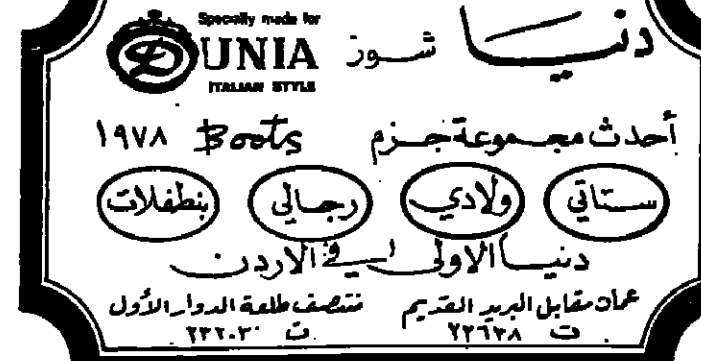 دنيا شوز
Specially made for
DUNIA
ITALIAN STYLE
أحدث مجموعة جزم Boots ١٩٧٨
ستاتي ولادي رجالي بنطفلات
دنيا الاولى في الاردن
عمان مقابل البريد القديم
ت ٢٢٦٣٨
منتصف طلعة الدوار الأول
ت ٢٣٢٠٣٠